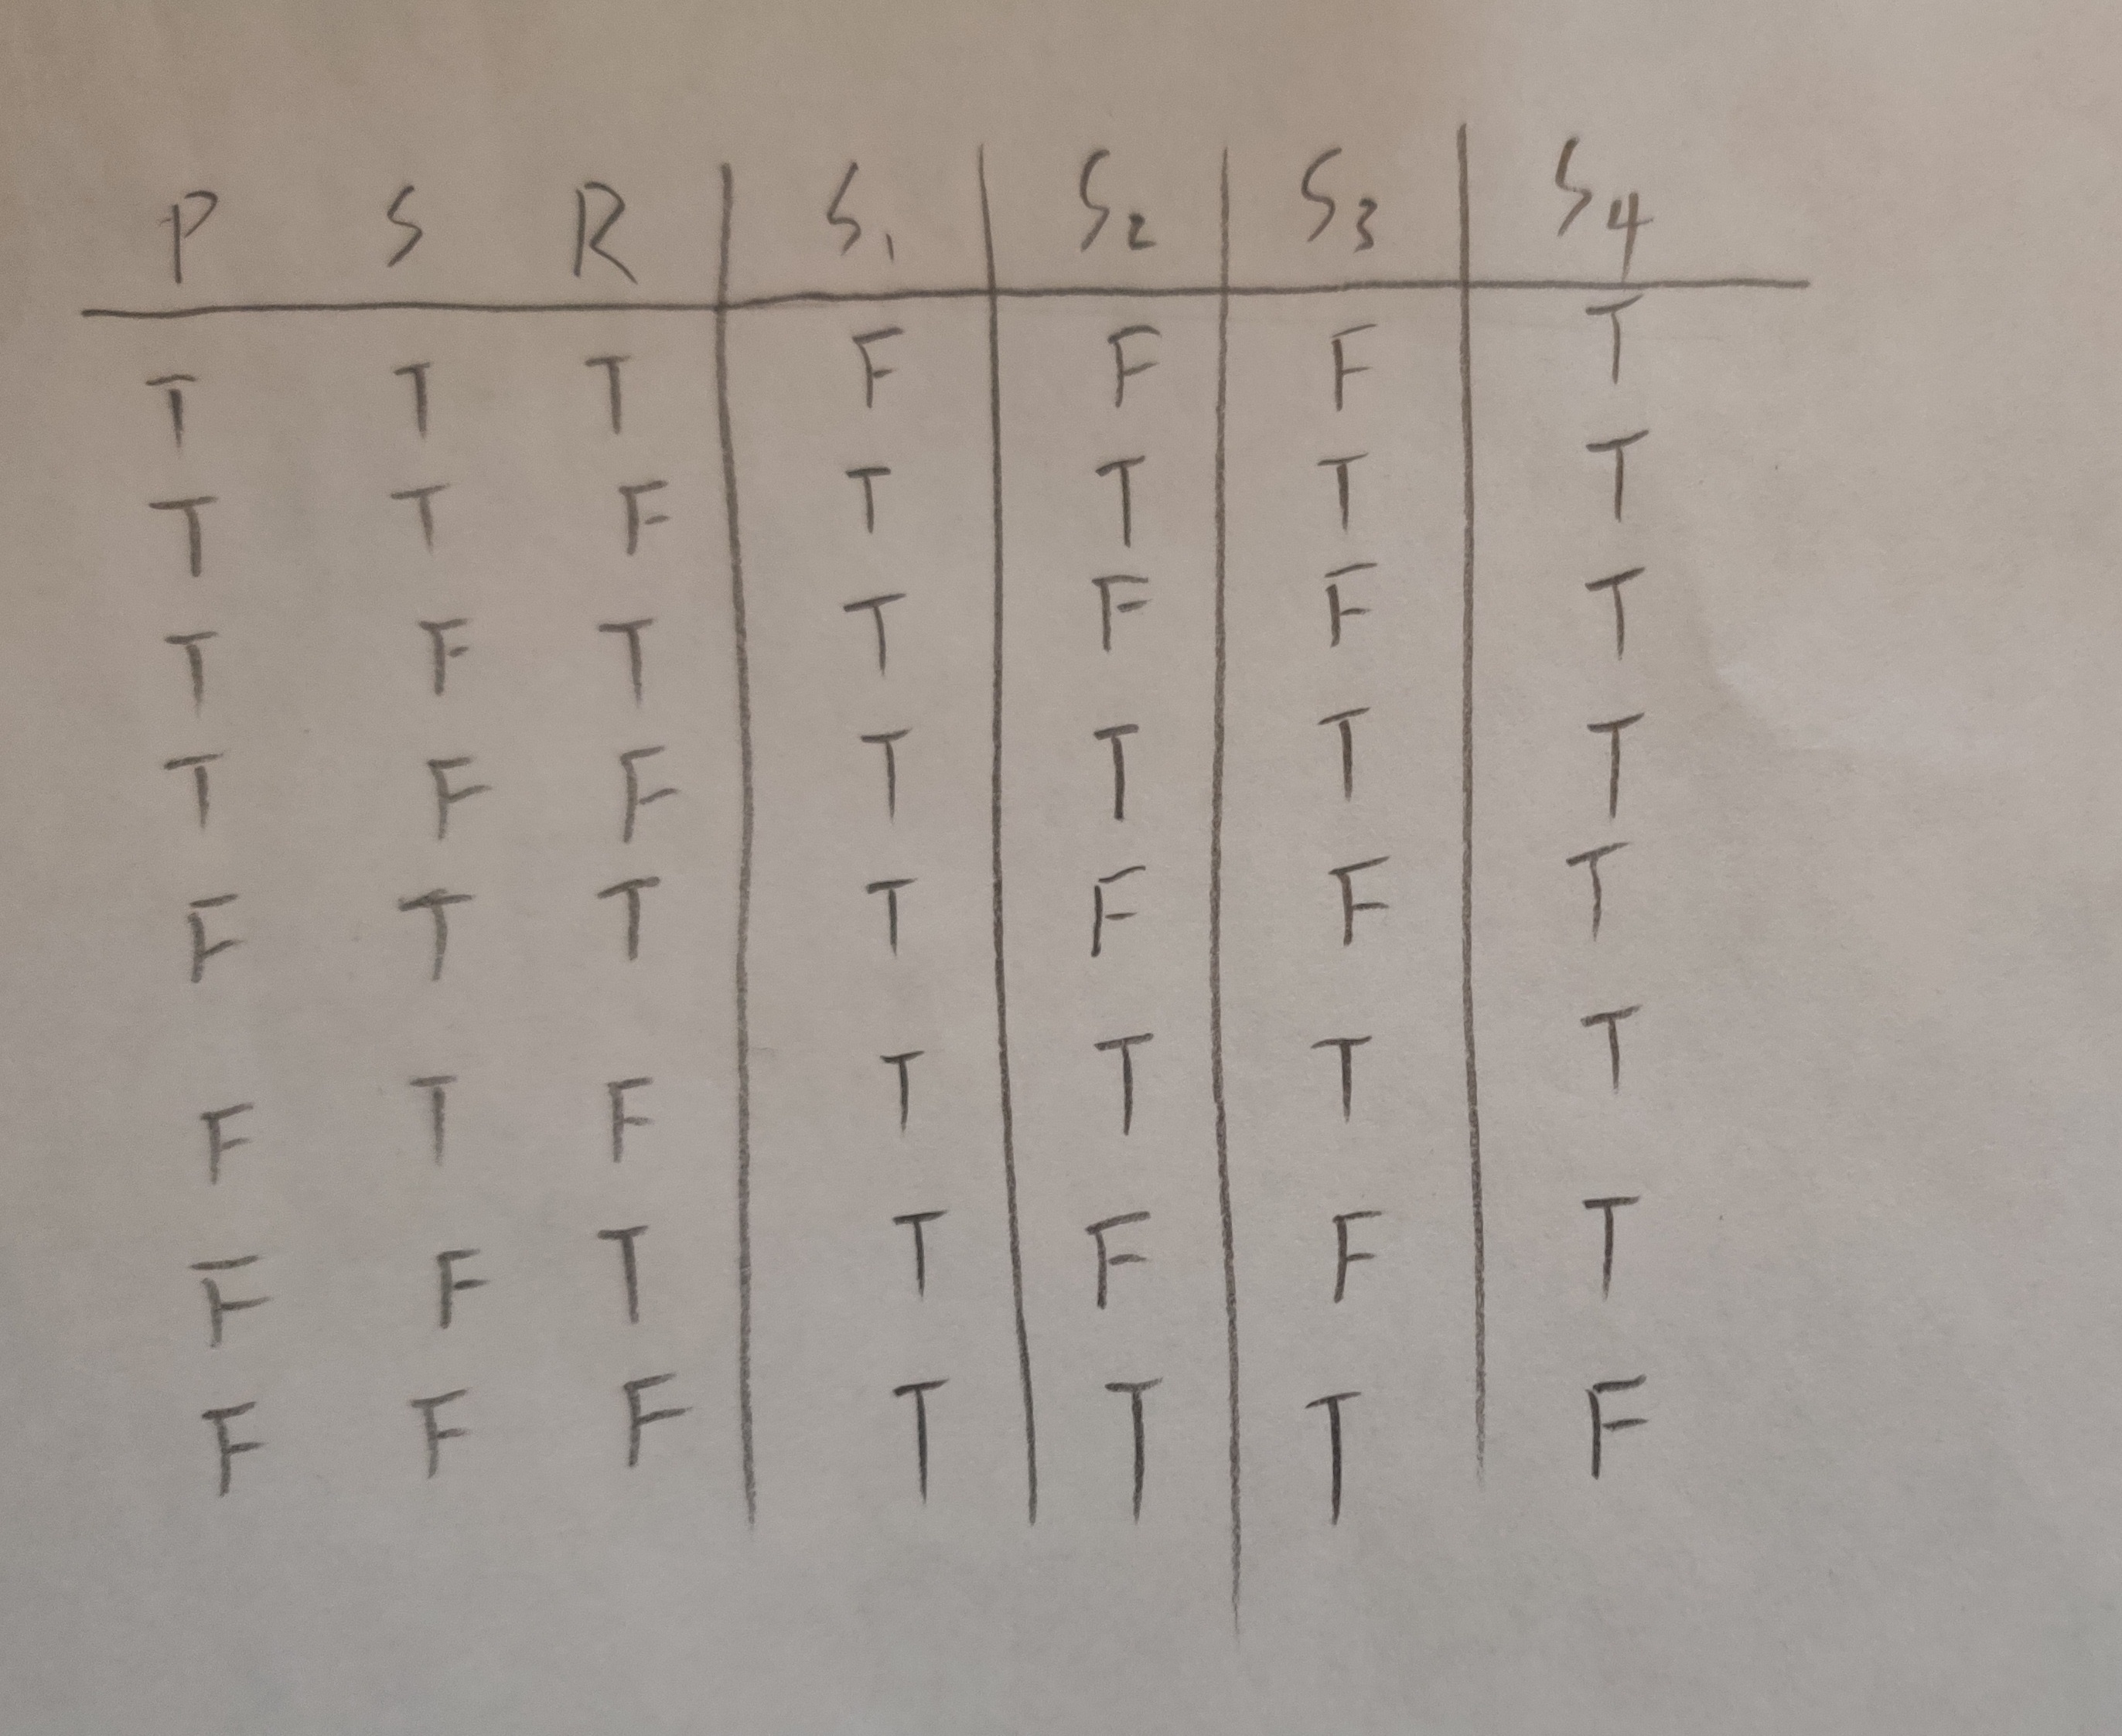 P S R S₁ S₂ S₃ S₄
T T T F F F T
T T F T T T T
T F T T F F T
T F F T T T T
F T T T F F T
F T F T T T T
F F T T F F T
F F F T T T F